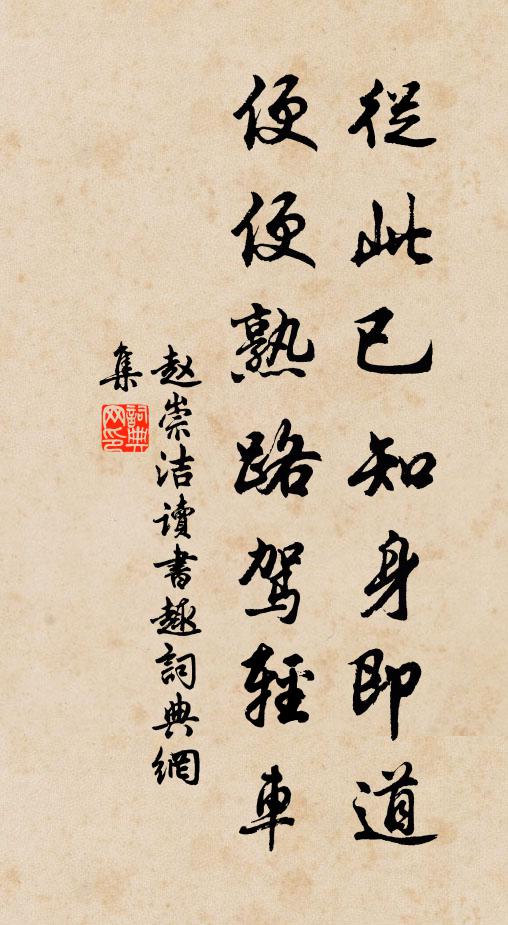 從此已知身即道
便便熟路駕輕車
赵崇洁讀書趣詞典網
集
詞典
网印